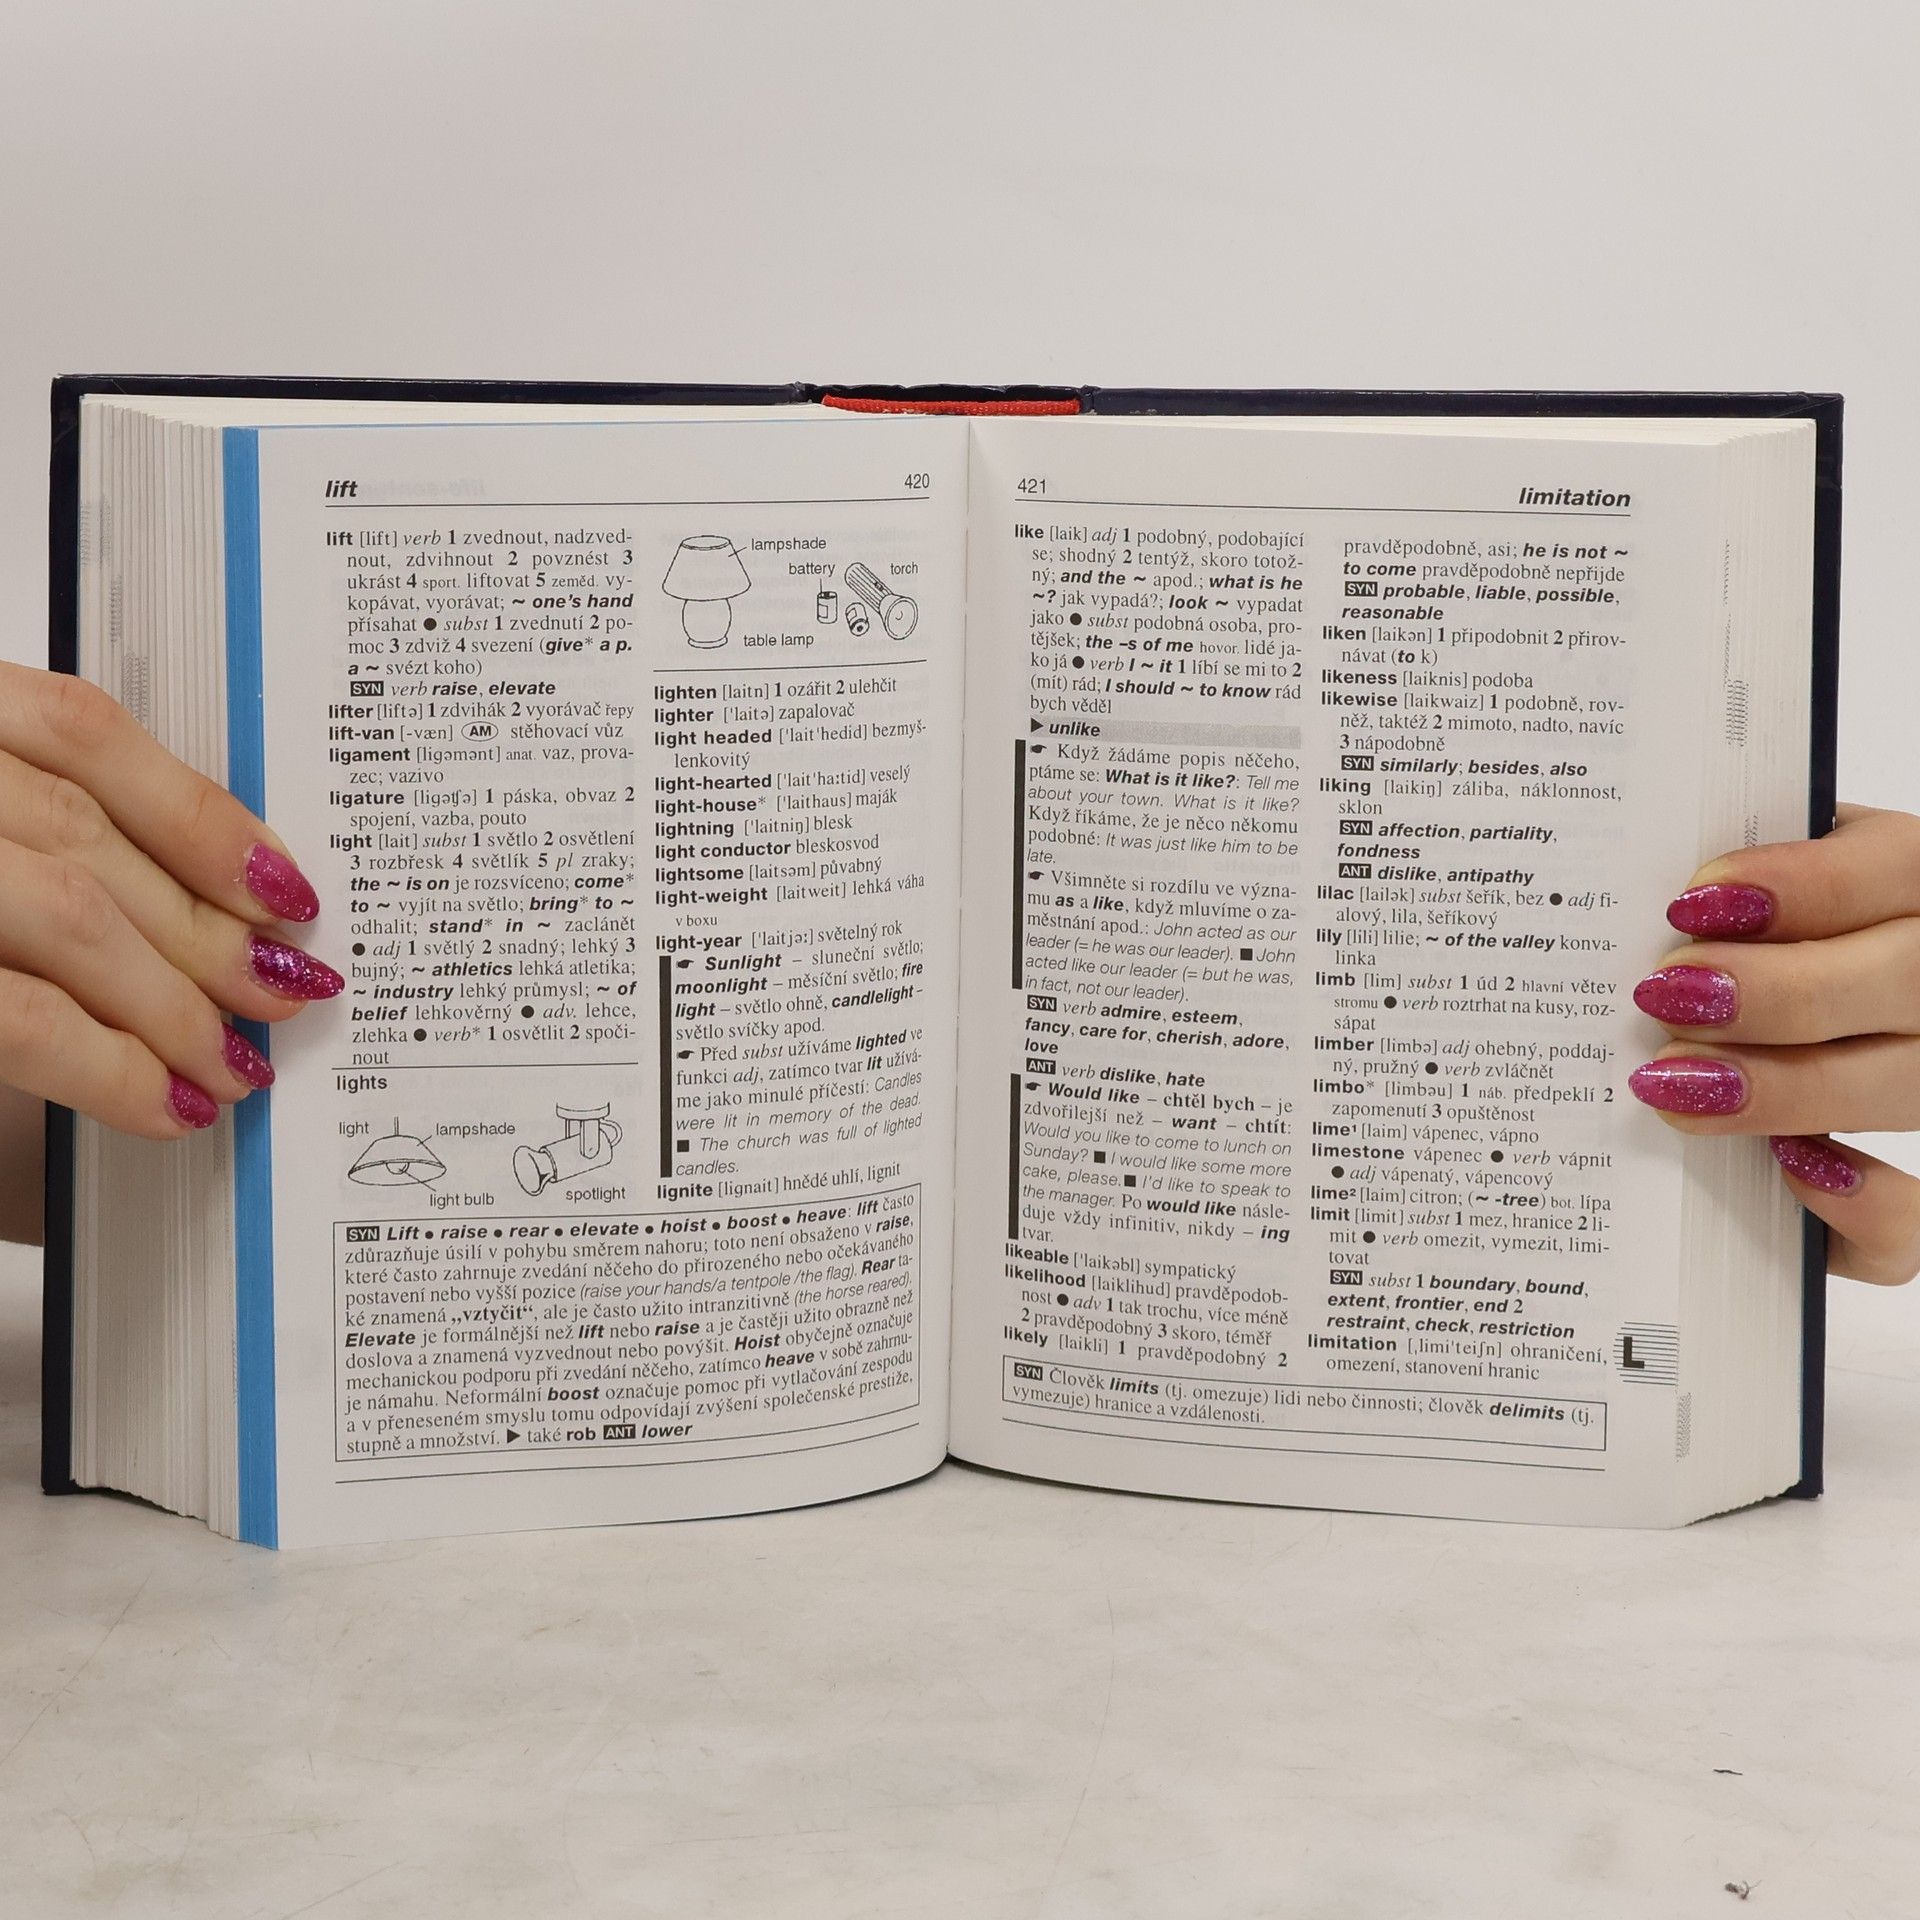 lift 420
lift [lift] verb 1 zvednout, nadzved-
nout, zdvihnout 2 povznést 3
ukrást 4 sport. liftovat 5 zeměd. vy-
kopávat, vyorávat; ~ one's hand
přísahat ● subst 1 zvednutí 2 po-
moc 3 zdviž 4 svezení (give* a p.
a ~ svézt koho)
SYN verb raise, elevate
lifter [liftə] 1 zdvihák 2 vyorávač řepy
lift-van [-væn] AM stěhovací vůz
ligament [ligəmənt] anat. vaz, prova-
zec; vazivo
ligature [ligətʃə] 1 páska, obvaz 2
spojení, vazba, pouto
light [lait] subst 1 světlo 2 osvětlení
3 rozbřesk 4 světlík 5 pl zraky;
the ~ is on je rozsvíceno; come*
to ~ vyjít na světlo; bring* to ~
odhalit; stand* in ~ zaclánět
● adj 1 světlý 2 snadný; lehký 3
bujný; ~ athletics lehká atletika;
~ industry lehký průmysl; ~ of
belief lehkověrný ● adv. lehce,
zlehka ● verb* 1 osvětlit 2 spoči-
nout
lights
light
lampshade
light bulb
spotlight
lampshade
battery
torch
table lamp
lighten [laitn] 1 ozářit 2 ulehčit
lighter ['laitə] zapalovač
light headed ['lait'hedid] bezmyš-
lenkovitý
light-hearted ['lait'ha:tid] veselý
light-house* ['laithaus] maják
lightning ['laitniŋ] blesk
light conductor bleskosvod
lightsome [laitsəm] půvabný
light-weight [laitweit] lehká váha
v boxu
light-year ['laitjə:] světelný rok
☛ Sunlight – sluneční světlo;
moonlight – měsíční světlo; fire
light – světlo ohně, candlelight –
světlo svíčky apod.
☛ Před subst užíváme lighted ve
funkci adj, zatímco tvar lit užívá-
me jako minulé příčestí: Candles
were lit in memory of the dead.
■ The church was full of lighted
candles.
lignite [lignait] hnědé uhlí, lignit
SYN Lift ● raise ● rear ● elevate ● hoist ● boost ● heave: lift často
zdůrazňuje úsilí v pohybu směrem nahoru; toto není obsaženo v raise,
které často zahrnuje zvedání něčeho do přirozeného nebo očekávaného
postavení nebo vyšší pozice (raise your hands/a tentpole /the flag). Rear ta-
ké znamená „vztyčit“, ale je často užito intranzitivně (the horse reared).
Elevate je formálnější než lift nebo raise a je častěji užito obrazně než
doslova a znamená vyzvednout nebo povýšit. Hoist obyčejně označuje
mechanickou podporu při zvedání něčeho, zatímco heave v sobě zahrnu-
je námahu. Neformální boost označuje pomoc při vytlačování zespodu
a v přeneseném smyslu tomu odpovídají zvýšení společenské prestiže,
stupně a množství. ▶ také rob ANT lower
421 limitation
like [laik] adj 1 podobný, podobající
se; shodný 2 tentýž, skoro totož-
ný; and the ~ apod.; what is he
~? jak vypadá?; look ~ vypadat
jako ● subst podobná osoba, pro-
tějšek; the –s of me hovor. lidé ja-
ko já ● verb I ~ it 1 líbí se mi to 2
(mít) rád; I should ~ to know rád
bych věděl
▶ unlike
☛ Když žádáme popis něčeho,
ptáme se: What is it like?: Tell me
about your town. What is it like?
Když říkáme, že je něco někomu
podobné: It was just like him to be
late.
☛ Všimněte si rozdílu ve význa-
mu as a like, když mluvíme o za-
městnání apod.: John acted as our
leader (= he was our leader). ■ John
acted like our leader (= but he was,
in fact, not our leader).
SYN verb admire, esteem,
fancy, care for, cherish, adore,
love
ANT verb dislike, hate
☛ Would like – chtěl bych – je
zdvořilejší než – want – chtít:
Would you like to come to lunch on
Sunday? ■ I would like some more
cake, please. ■ I'd like to speak to
the manager. Po would like násle-
duje vždy infinitiv, nikdy – ing
tvar.
likeable ['laikəbl] sympatický
likelihood [laiklihud] pravděpodob-
nost ● adv 1 tak trochu, více méně
2 pravděpodobný 3 skoro, téměř
likely [laikli] 1 pravděpodobný 2
pravděpodobně, asi; he is not ~
to come pravděpodobně nepřijde
SYN probable, liable, possible,
reasonable
liken [laikən] 1 připodobnit 2 přirov-
návat (to k)
likeness [laiknis] podoba
likewise [laikwaiz] 1 podobně, rov-
něž, taktéž 2 mimoto, nadto, navíc
3 nápodobně
SYN similarly; besides, also
liking [laikiŋ] záliba, náklonnost,
sklon
SYN affection, partiality,
fondness
ANT dislike, antipathy
lilac [lailək] subst šeřík, bez ● adj fi-
alový, lila, šeříkový
lily [lili] lilie; ~ of the valley konva-
linka
limb [lim] subst 1 úd 2 hlavní větev
stromu ● verb roztrhat na kusy, roz-
sápat
limber [limbə] adj ohebný, poddaj-
ný, pružný ● verb zvláčnět
limbo* [limbəu] 1 náb. předpeklí 2
zapomenutí 3 opuštěnost
lime¹ [laim] vápenec, vápno
limestone vápenec ● verb vápnit
● adj vápenatý, vápencový
lime² [laim] citron; (~ -tree) bot. lípa
limit [limit] subst 1 mez, hranice 2 li-
mit ● verb omezit, vymezit, limi-
tovat
SYN subst 1 boundary, bound,
extent, frontier, end 2
restraint, check, restriction
limitation [,limi'teiʃn] ohraničení,
omezení, stanovení hranic
L
SYN Člověk limits (tj. omezuje) lidi nebo činnosti; člověk delimits (tj.
vymezuje) hranice a vzdálenosti.